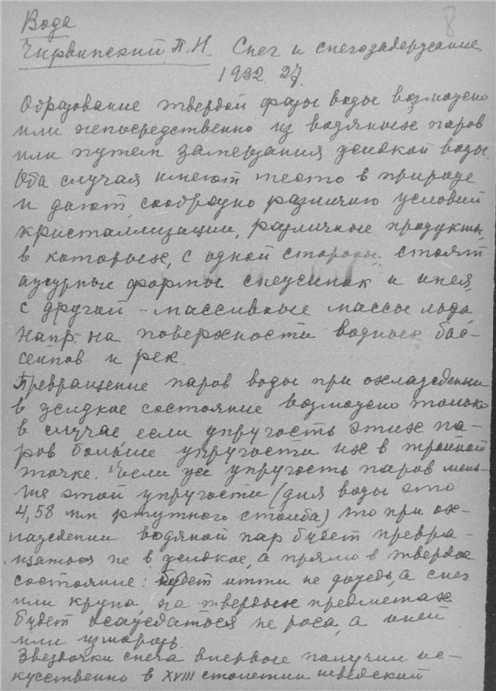 8
Вода
Чирвинский П.Н. Снег и снегозадержание
1932 27.
Образование твердой фазы воды возможно
или непосредственно из водяных паров
или путем замерзания жидкой воды.
Оба случая имеют место в природе
и дают сообразно различию условий
кристаллизации, различные продукты,
в которых, с одной стороны стоят
ажурные формы снежинок и инея
с другой - массивные массы льда
напр. на поверхности водных бас-
сейнов и рек.
Превращение паров воды при охлаждении
в жидкое состояние возможно только
в случае если упругость этих па-
ров больше упругости их в тройной
точке. Если же упругость паров мень-
ше этой упругости (для воды это
4,58 мм ртутного столба) то при ох-
лаждении водяной пар будет превра-
щаться не в жидкое, а прямо в твердое
состояние: будет итти не дождь, а снег
или крупа, на твердых предметах
будет осаждаться не роса, а иней
или изморозь.
Звездочки снега впервые получил ис-
кусственно в XVIII столетии шведский